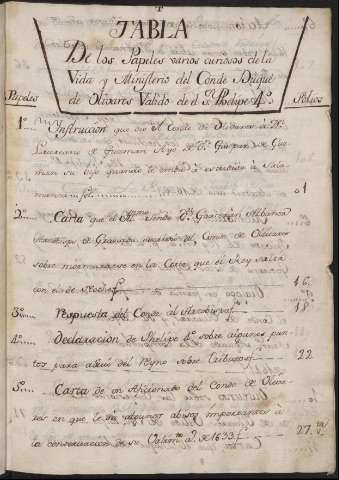 TABLA
De los Papeles varios curiosos de la
Vida y Ministerio del Conde Duque
de Olivares Valido de el Sr. Phelipe 4º.
Papeles
Folios
1º.... Instruccion que dio el Conde de Olivares à
de Guzman Ayo de Dn. Gaspar de Guz
man su hijo quando le embió à estudiar à Sala
manca fol. 01
2º.... Carta que el Ylmo. Señor Dn. Garceran Albanel
Arzobispo de Granada al Conde de Olivares
sobre murmurarse en la Corte que el Rey salia
con el de Noche fº 16
3º..... Respuesta del Conde al Arzobispo fº 18
4º..... Declaracion de Phelipe 4º sobre algunos pun
tos para alivio del Reyno sobre tributos fº 22
5º..... Carta de un Aficionado del Conde de Oliva
res en que le da algunos abisos importantes à
la conservacion de su Valimtº. aº. de 1633 f. 27